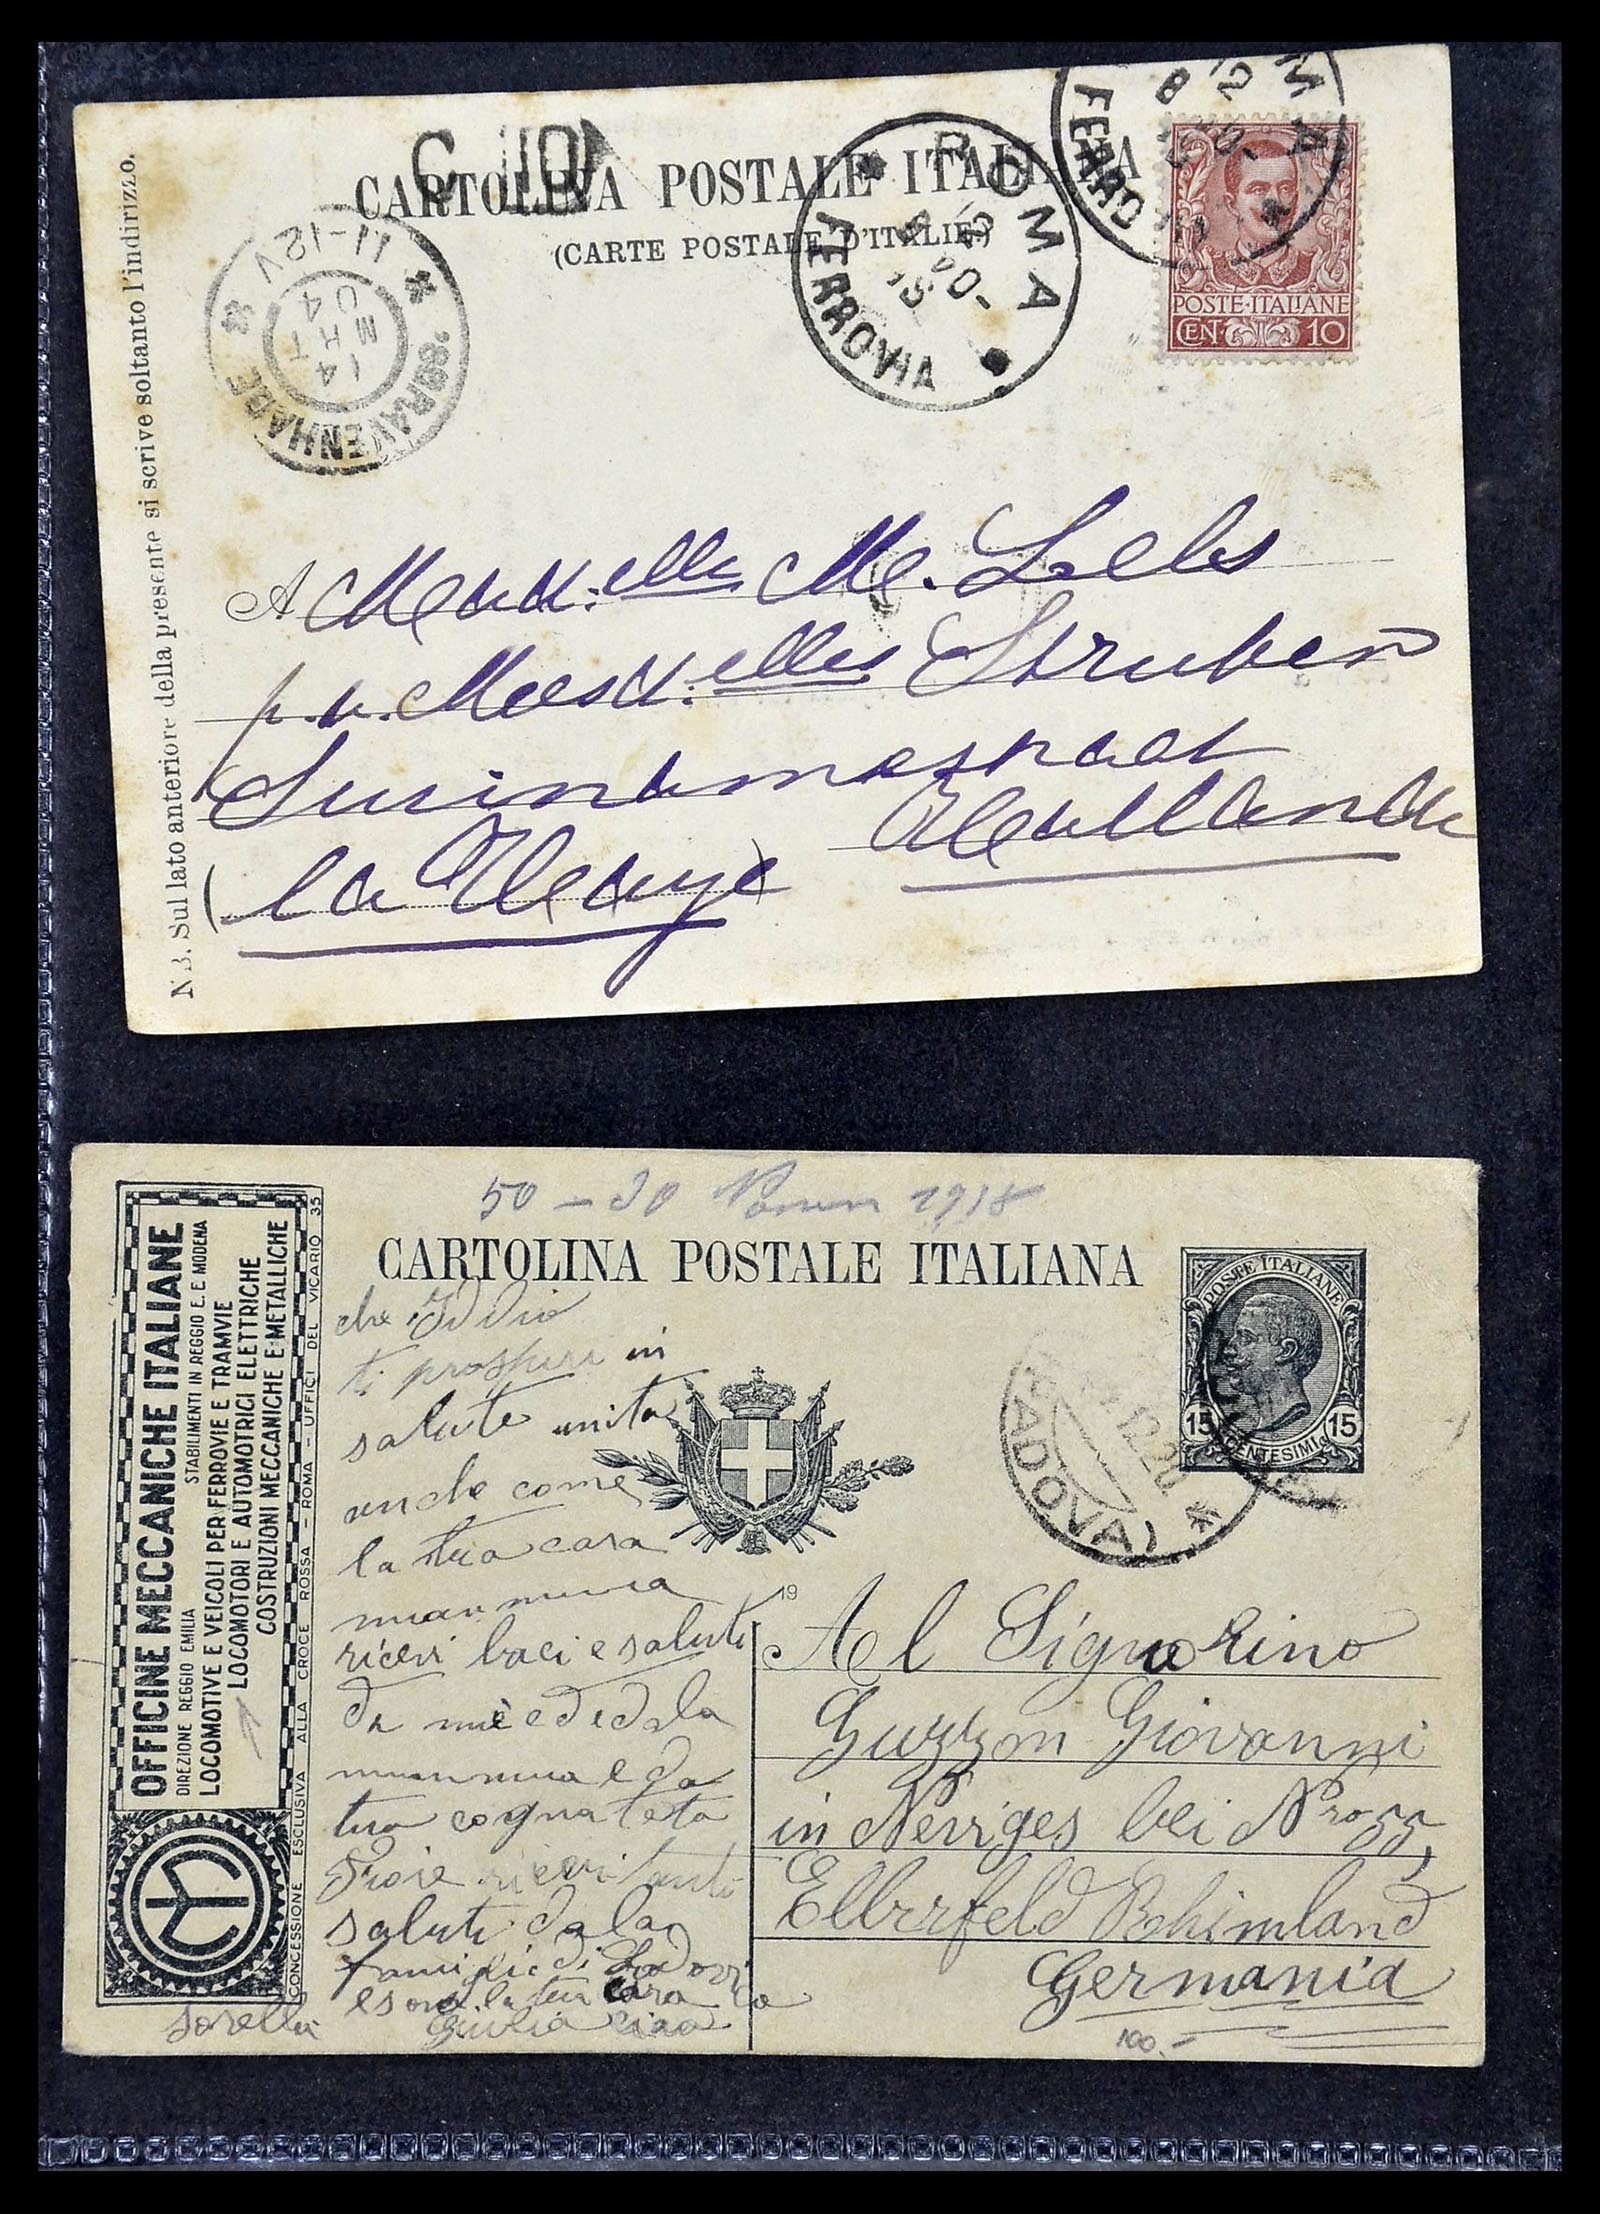 CARTOLINA POSTALE ITALIANA
(CARTE POSTALE D'ITALIE)
ROMA
FERROVIA
ROMA
FERROVIA
POSTE·ITALIANE
CEN. 10
'SGRAVENHAGE
14
MRT
04
11-12V
N.B. Sul lato anteriore della presente si scrive soltanto l'indirizzo.
A M. Lels
Struben
Surinamestraat
(la Haye) Hollande
50 - 30 1918
CARTOLINA POSTALE ITALIANA
POSTE ITALIANE
15 15
CENTESIMI
(PADOVA)
OFFICINE MECCANICHE ITALIANE
DIREZIONE REGGIO EMILIA STABILIMENTI IN REGGIO E. E MODENA
LOCOMOTIVE E VEICOLI PER FERROVIE E TRAMVIE
LOCOMOTORI E AUTOMOTRICI ELETTRICHE
COSTRUZIONI MECCANICHE E METALLICHE
CONCESSIONE ESCLUSIVA ALLA CROCE ROSSA - ROMA - UFFICI DEL VICARIO 35
che Iddio
ti prosperi in
salute unita
anche come
la tua cara
mamma
ricevi baci e saluti
da me e de da la
mamma e da
tua cognateta
ricevi tanti
saluti da la
famiglie di
e sono la tua cara
Giulia ciao
sorella
19
Al Signorino
Guzzon Giovanni
in Neviges bei Nro 55,
Elberfeld Rhimland
Germania
100.-